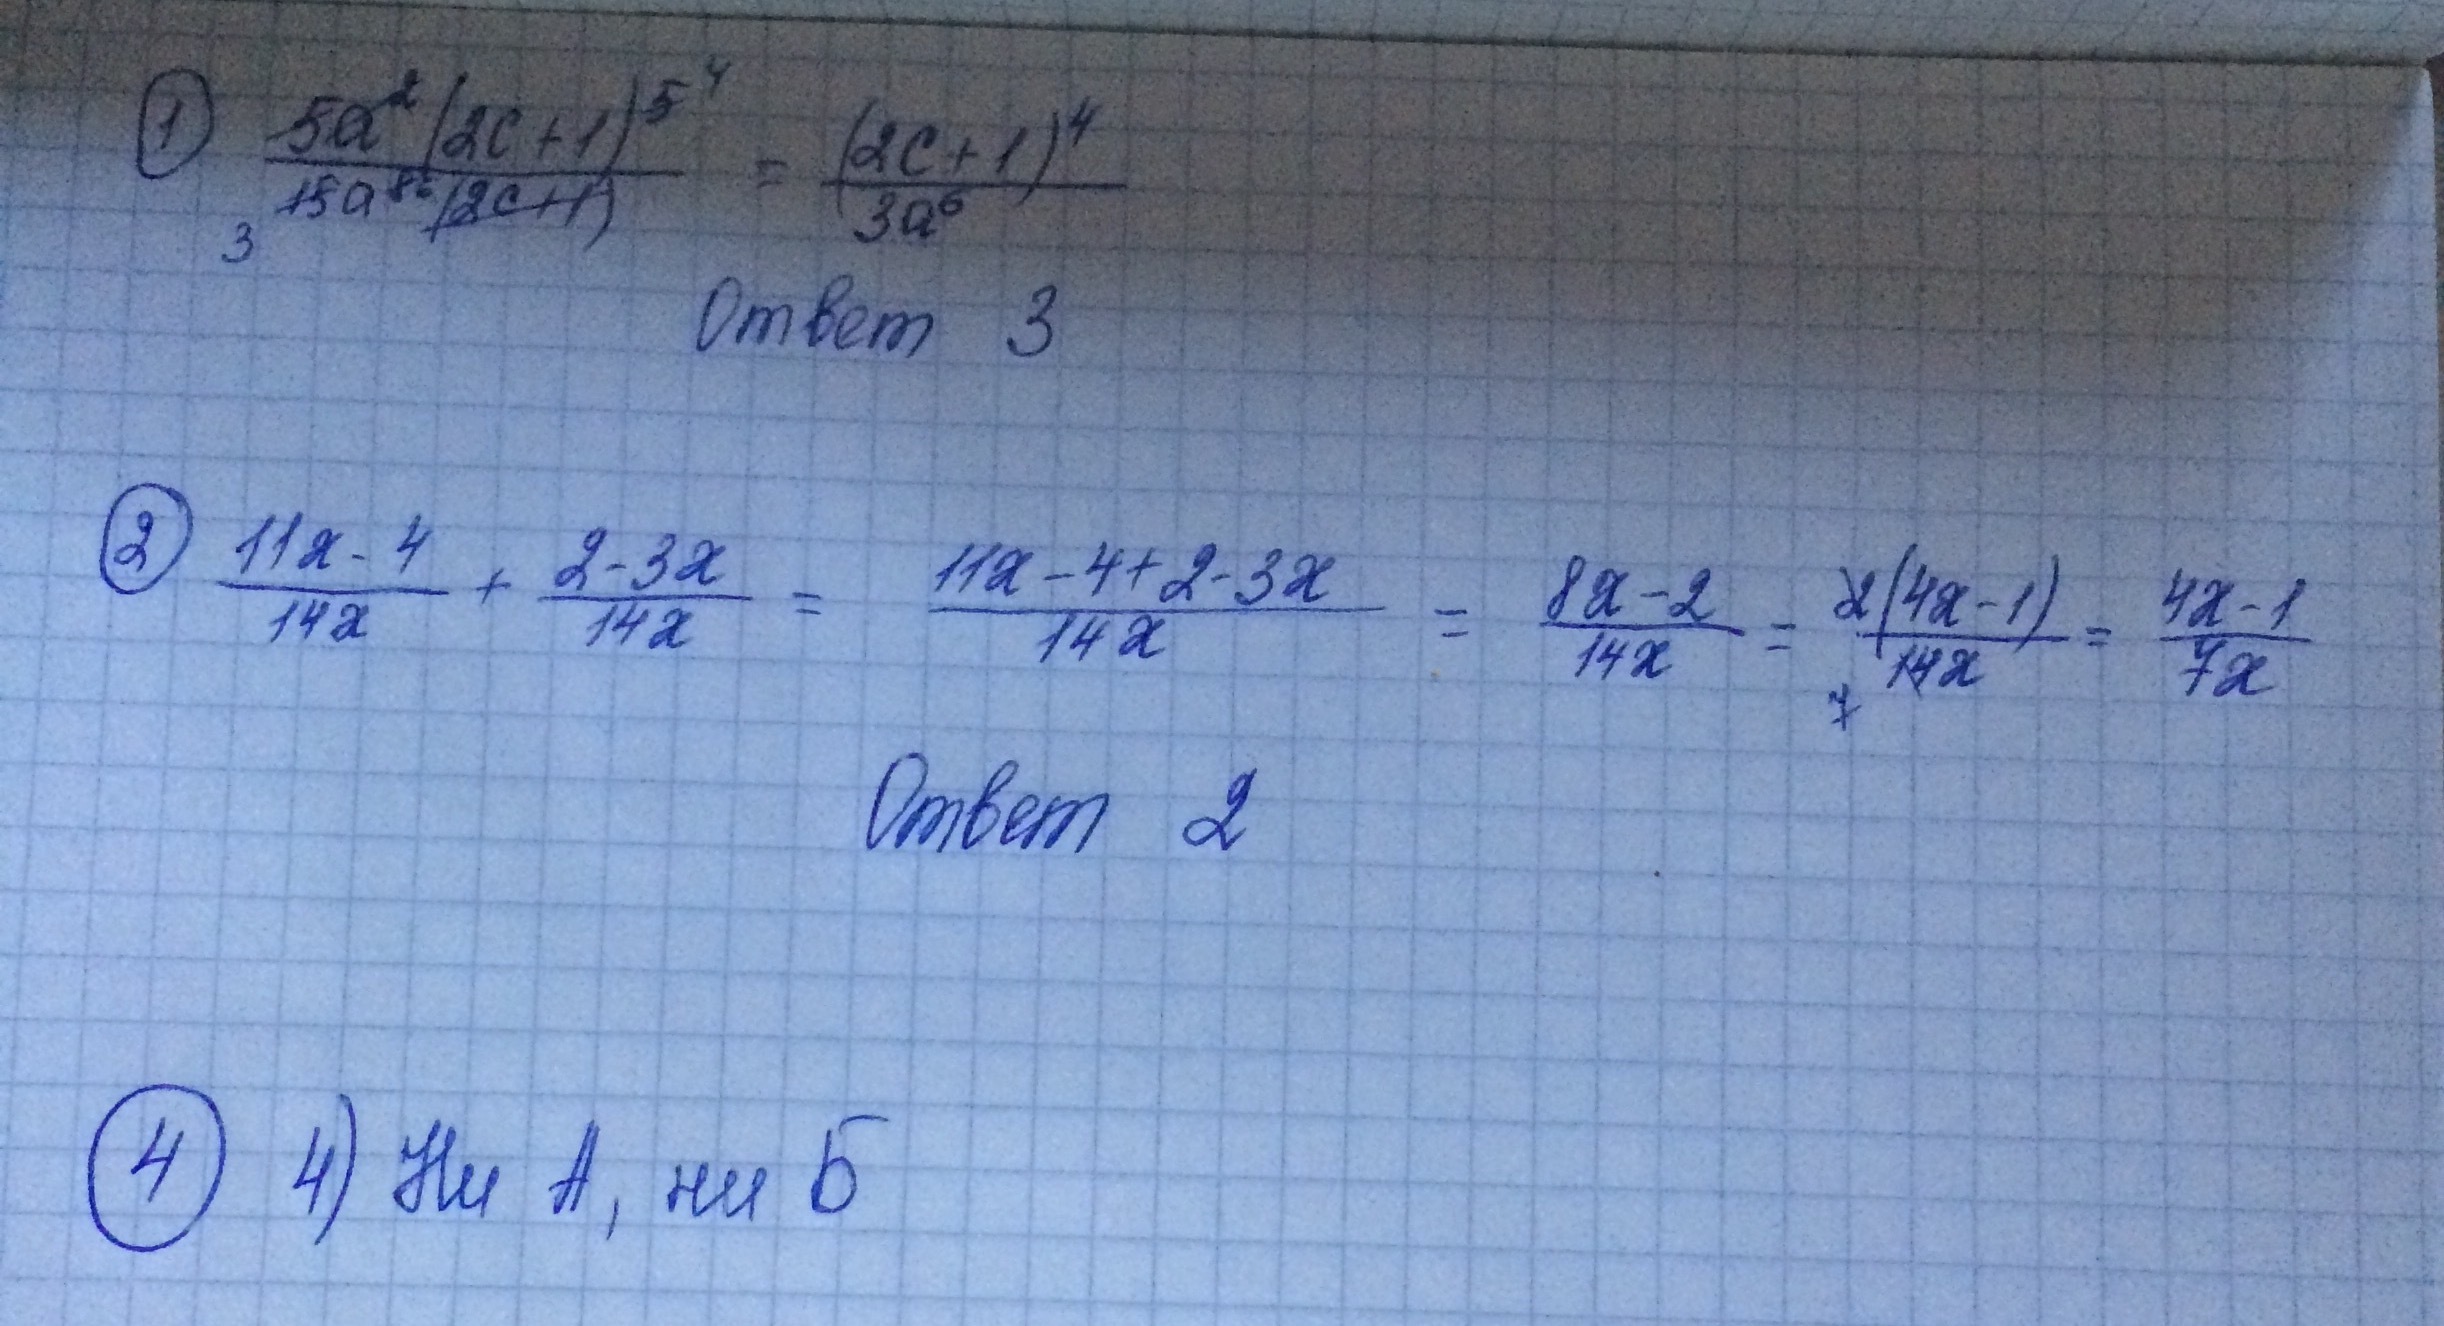 ① 5a²(2c+1)⁵ ⁴ / 15a⁸ ⁶(2c+1) 3 = (2c+1)⁴ / 3a⁶
Ответ 3
② (11x-4)/14x + (2-3x)/14x = (11x-4+2-3x)/14x = (8x-2)/14x = 2(4x-1)/14x 7 = (4x-1)/7x
Ответ 2
④ 4) Ни А, ни Б